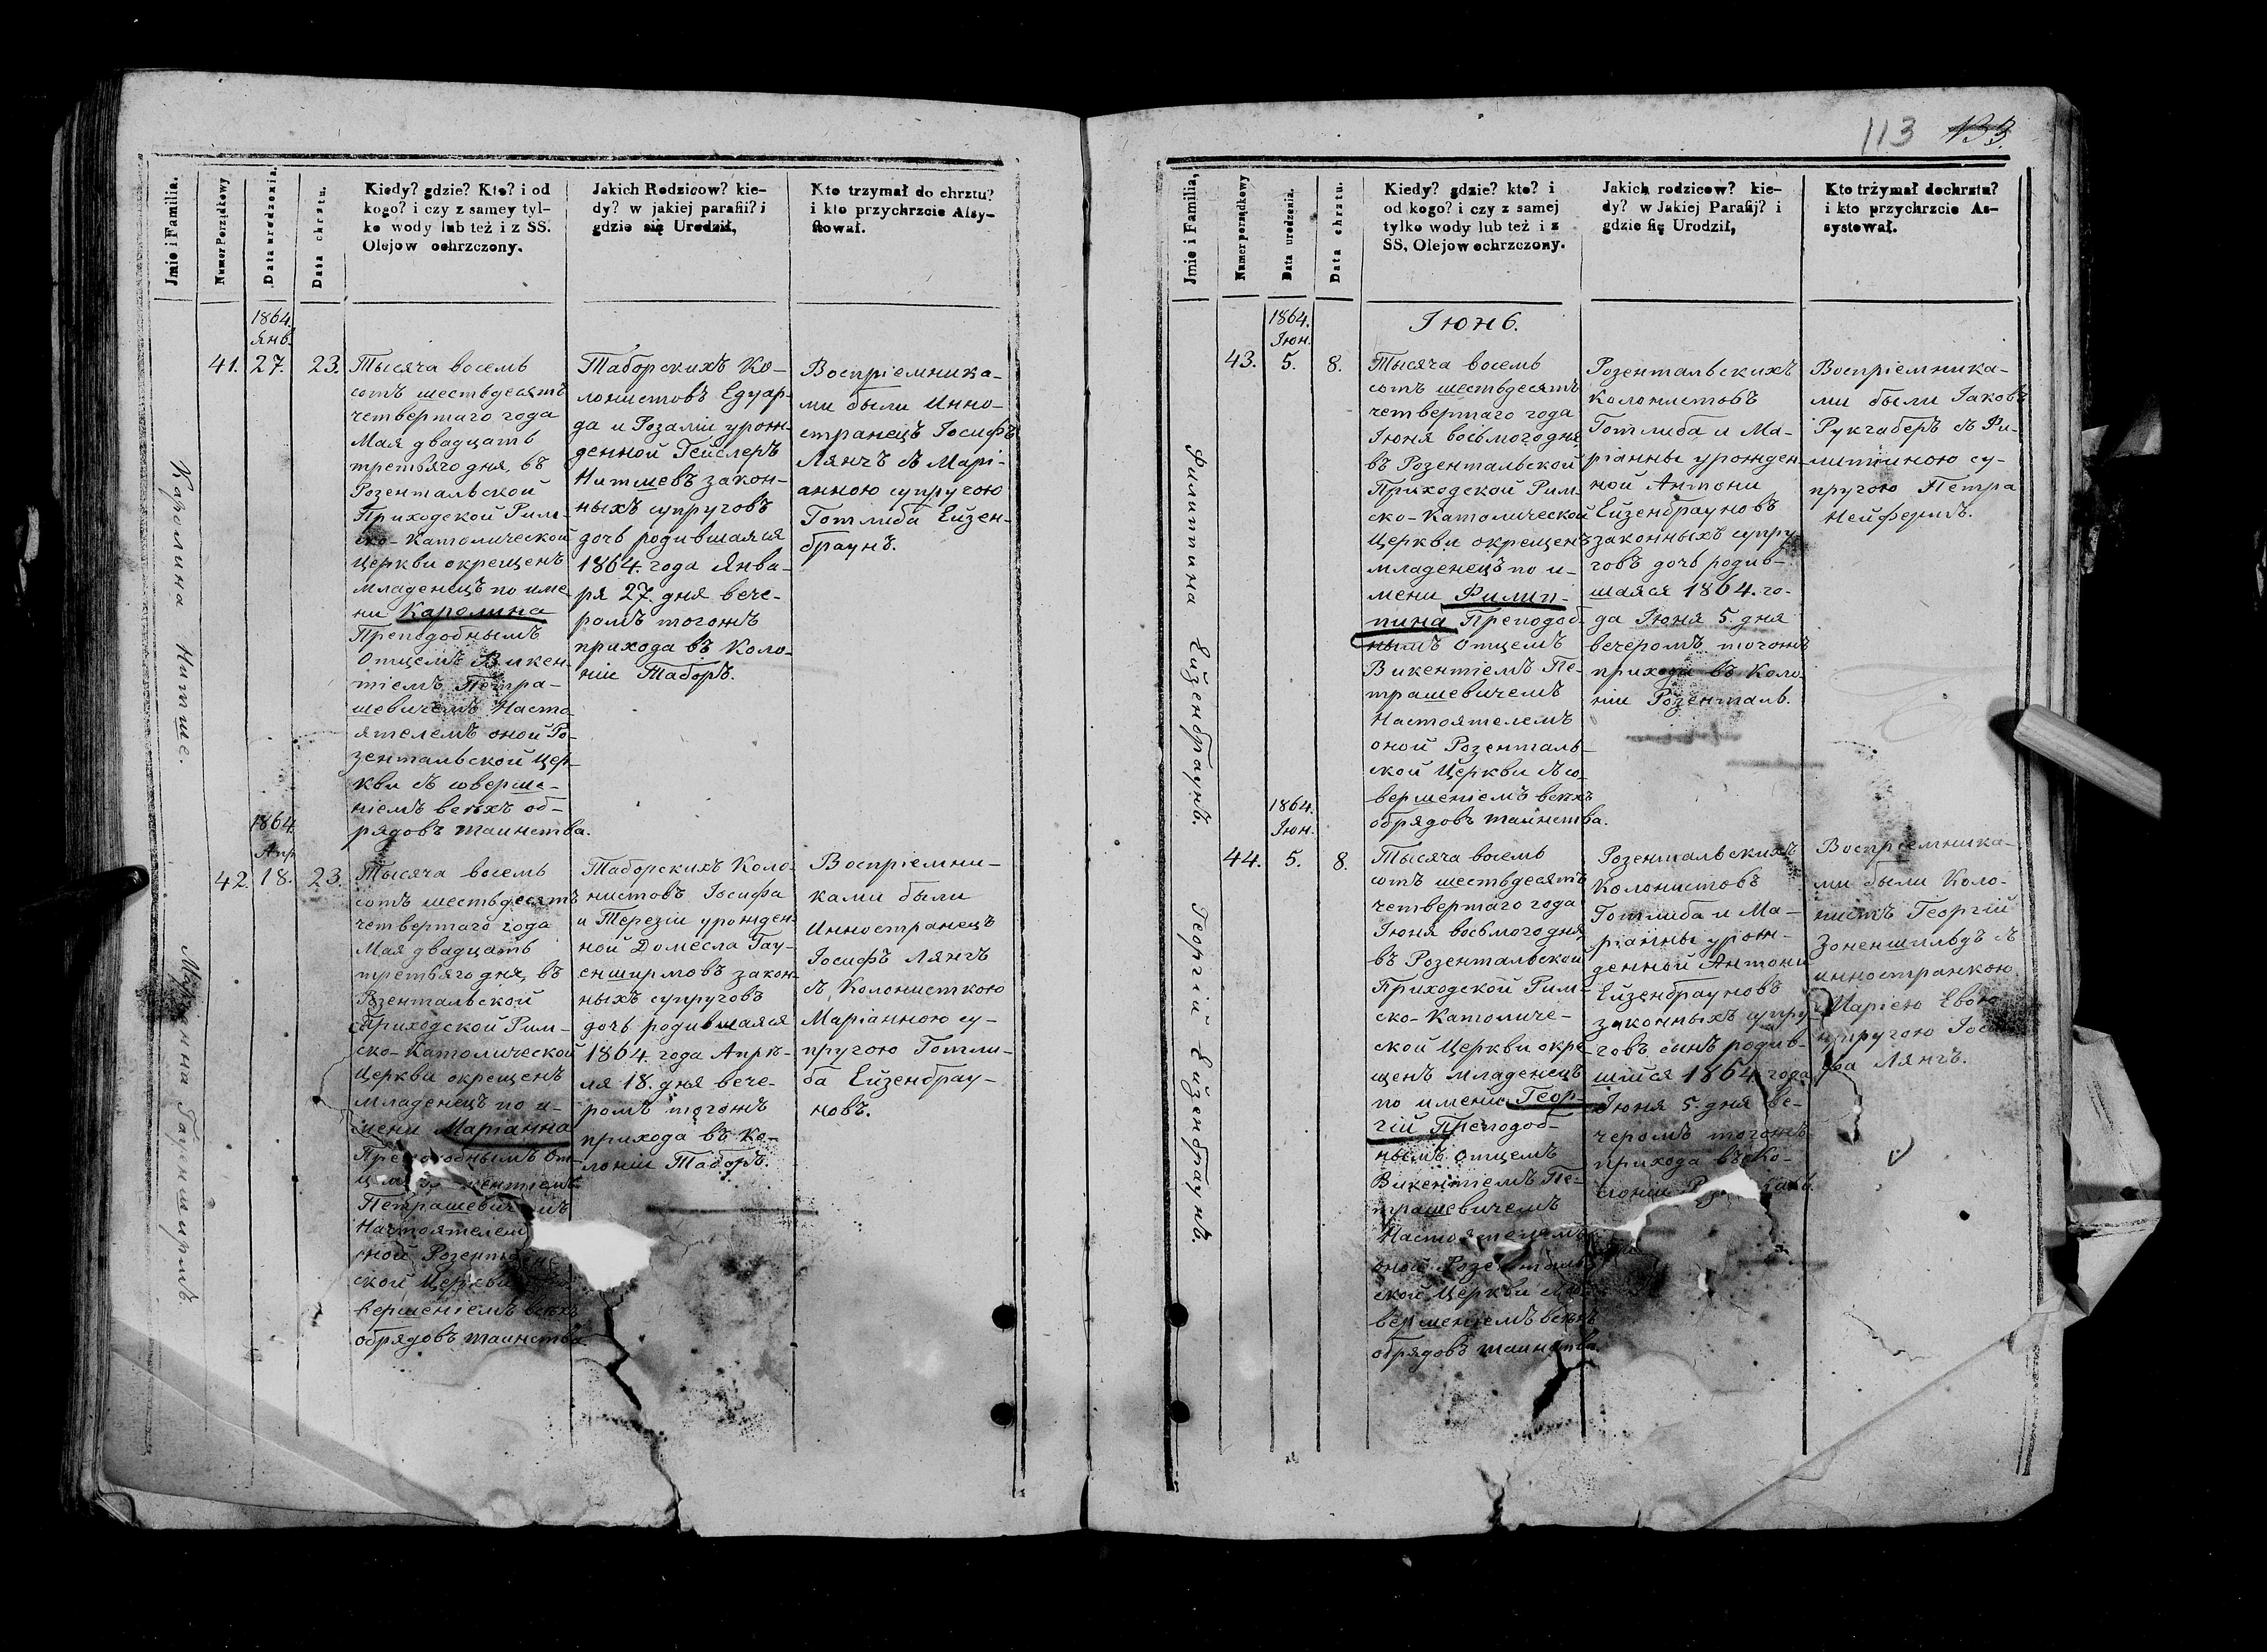 113 133.
Jmie i Familia.
Numer Porządkowy
Data urodzenia.
Data chrztu.
Kiedy? gdzie? Kto? i od
kogo? i czy z samey tyl-
ko wody lub też i z SS.
Olejow ochrzczony.
Jakich Rodzicow? kie-
dy? w jakiej parafii? i
gdzie się Urodził,
Kto trzymał do chrztu?
i kto przychrzcie Assy-
stował.
Каролина Нитше.
1864.
Янв.
41. 27. 23.
Тысяча восемь
сотъ шестьдесятъ
четвертаго года
Мая двадцать
третьяго дня, въ
Розентальской
Приходской Рим-
ско-Католической
Церкви окрещенъ
младенецъ по име
ни Каролина
Преподобнымъ
Отцемъ Викен-
тіемъ Петра-
шевичемъ Насто
ятелемъ оной Ро-
зентальской Цер-
кви съ соверше-
ніемъ всѣхъ об-
рядовъ таинства.
Таборскихъ Ко-
лонистовъ Едуар-
да и Розаліи урож-
денной Гейслеръ
Нитшевъ закон-
ныхъ супруговъ
дочь родившаяся
1864. года Янва-
ря 27. дня вече-
ромъ тогожъ
прихода въ Коло-
ніи Таборъ.
Воспріемника-
ми были Инно-
странецъ Іосифъ
Лянгъ съ Марі-
анною супругою
Готлиба Ейзен-
браунъ.
Маріанна Гауенширмъ.
1864.
Апр
42. 18. 23.
Тысяча восемь
сотъ шестьдесятъ
четвертаго года
Мая двадцать
третьяго дня, въ
Розентальской
Приходской Рим-
ско-Католической
Церкви окрещенъ
младенецъ по и-
мени Маріанна
Преподобнымъ От-
Петрашевич мъ
Настоятелем
оной
ской Церкви
вершеніемъ всѣхъ
обрядовъ таинства
Таборскихъ Коло-
нистовъ Іосифа
и Терезіи урожден-
ной Домесла Гау-
енширмовъ закон-
ныхъ супруговъ
дочь родившаяся
1864. года Апрѣ-
ля 18. дня вече-
ромъ тогожъ
прихода въ Ко-
лоніи Таборъ.
Воспріемни-
ками были
Инностранецъ
Іосифъ Лянгъ
съ Колонисткою
Маріанною су-
пругою Готли-
ба Ейзенбрау-
новъ.
Jmie i Familia,
Numer porządkowy
Data urodzenia.
Data chrztu.
Kiedy? gdzie? kto? i
od kogo? i czy z samej
tylko wody lub też i z
SS, Olejow ochrzczony.
Jakich rodzicow? kie-
dy? w Jakiej Parafij? i
gdzie się Urodził,
Kto trżymał dochrztu?
i kto przychrzcie As-
systował.
Филиппина Ейзенбраунъ.
Іюнь.
1864.
Іюн.
43. 5. 8.
Тысяча восемь
сотъ шестьдесятъ
четвертаго года
Іюня восьмого дня
въ Розентальской
Приходской Рим-
ско-Католической
Церкви окрещенъ
младенецъ по и-
мени Филип-
пина Преподоб-
нымъ Отцемъ
Викентіемъ Пе-
трашевичемъ
Настоятелемъ
оной Розенталь-
ской Церкви съ со-
вершеніемъ всѣхъ
обрядовъ таинства.
Розентальскихъ
Колонистовъ
Готлиба и Ма-
ріанны урожден-
ной Антони
Ейзенбрауновъ
законныхъ супру-
говъ дочь родив-
шаяся 1864. го-
да Іюня 5. дня
вечеромъ тогожъ
прихода въ Коло-
ніи Розенталь.
Воспріемника-
ми были Іаковъ
Рукгаберъ съ Фи-
липпиною су-
пругою Петра
Нейфертъ.
Георгій Ейзенбраунъ.
1864.
Іюн.
44. 5. 8.
Тысяча восемь
сотъ шестьдесятъ
четвертаго года
Іюня восьмого дня,
въ Розентальской
Приходской Рим-
ско-Католиче-
ской Церкви окре-
щенъ младенецъ
по имени Геор-
гій Преподоб-
нымъ Отцемъ
Викентіемъ Пе-
трашевичемъ
Настоятелемъ
оной
ской Церкви
вершеніемъ всѣхъ
обрядовъ таинства.
Розентальскихъ
Колонистовъ
Готлиба и Ма-
ріанны урож-
денной Антони
Ейзенбрауновъ
законныхъ супру-
говъ сынъ родив-
шийся 1864. года
Іюня 5. дня ве-
черомъ тогожъ
прихода въ Ко-
лоніи
Воспріемника-
ми были Коло-
нистъ Георгій
Зоненшильдъ съ
инностранкою
Маріею Евою
супругою Іоси-
фа Лянгъ.